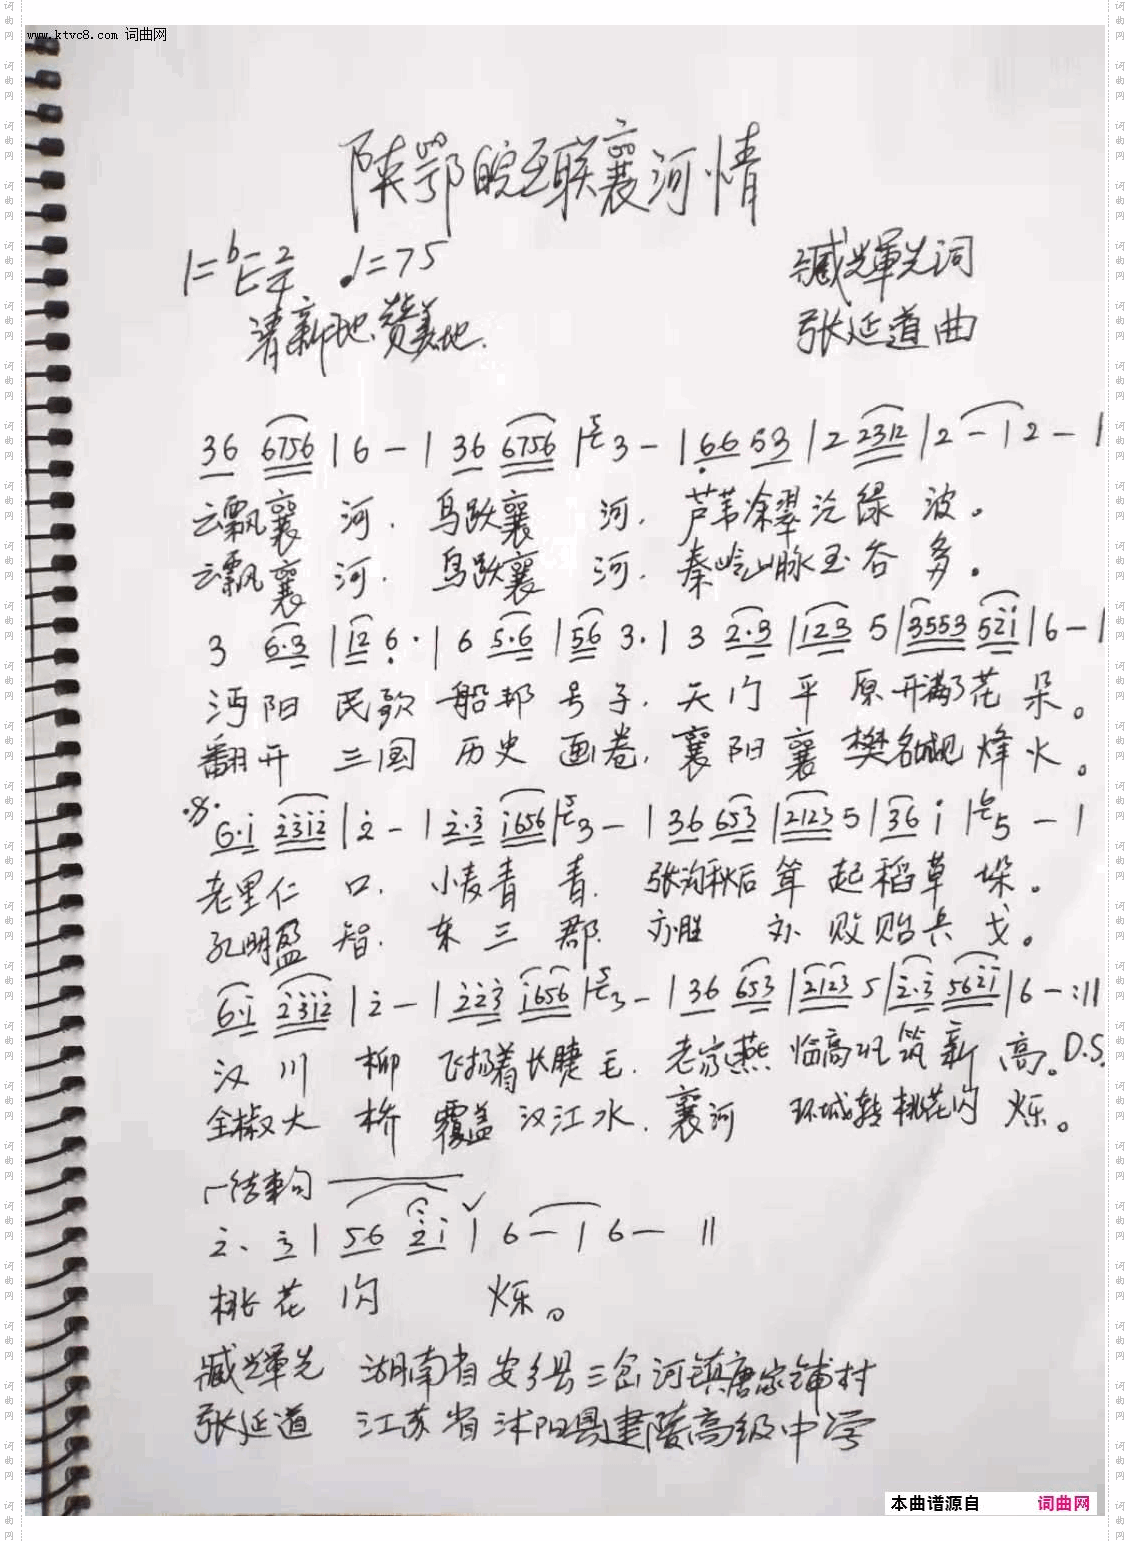 www.ktvc8.com 词曲网
陕鄂皖互联襄河情
1=bE 2/4 ♩=75
臧辉光词
清新地、赞美地.
张延道曲
36 6756 | 6 - | 36 6756 | 3 - | 66 53 | 2 2312 | 2 - | 2 - |
云飘襄河. 鸟跃襄河. 芦苇涂翠泛绿波。
云飘襄河. 鸟跃襄河. 秦岭山脉玉谷多。
3 6·3 | 12 6· | 6 5·6 | 56 3· | 3 2·3 | 123 5 | 3553 52i | 6 - |
沔阳民歌船邦号子. 天门平原开满了花朵。
翻开三国历史画卷. 襄阳襄樊 烽火。
6·i 2312 | 2 - | 2·3 i656 | 3 - | 36 653 | 2123 5 | 36 i | 5 - |
老里仁口. 小麦青青. 张沟秋后耸起稻草垛。
孔明盈智. 东三郡. 亦胜亦败贻兵戈。
6·i 2312 | 2 - | 223 i656 | 3 - | 36 653 | 2123 5 | 2·3 562i | 6 - :||
汉川柳飞扬着长睫毛. 老家燕临高 筑新高。D.S.
全椒大桥覆盖汉江水. 襄河环城转桃花闪烁。
结束句
2. 3 | 56 2i | 6 - | 6 - ||
桃花闪烁。
臧辉光 湖南省安乡县三岔河镇唐家铺村
张延道 江苏省沭阳县建陵高级中学
本曲谱源自 词曲网